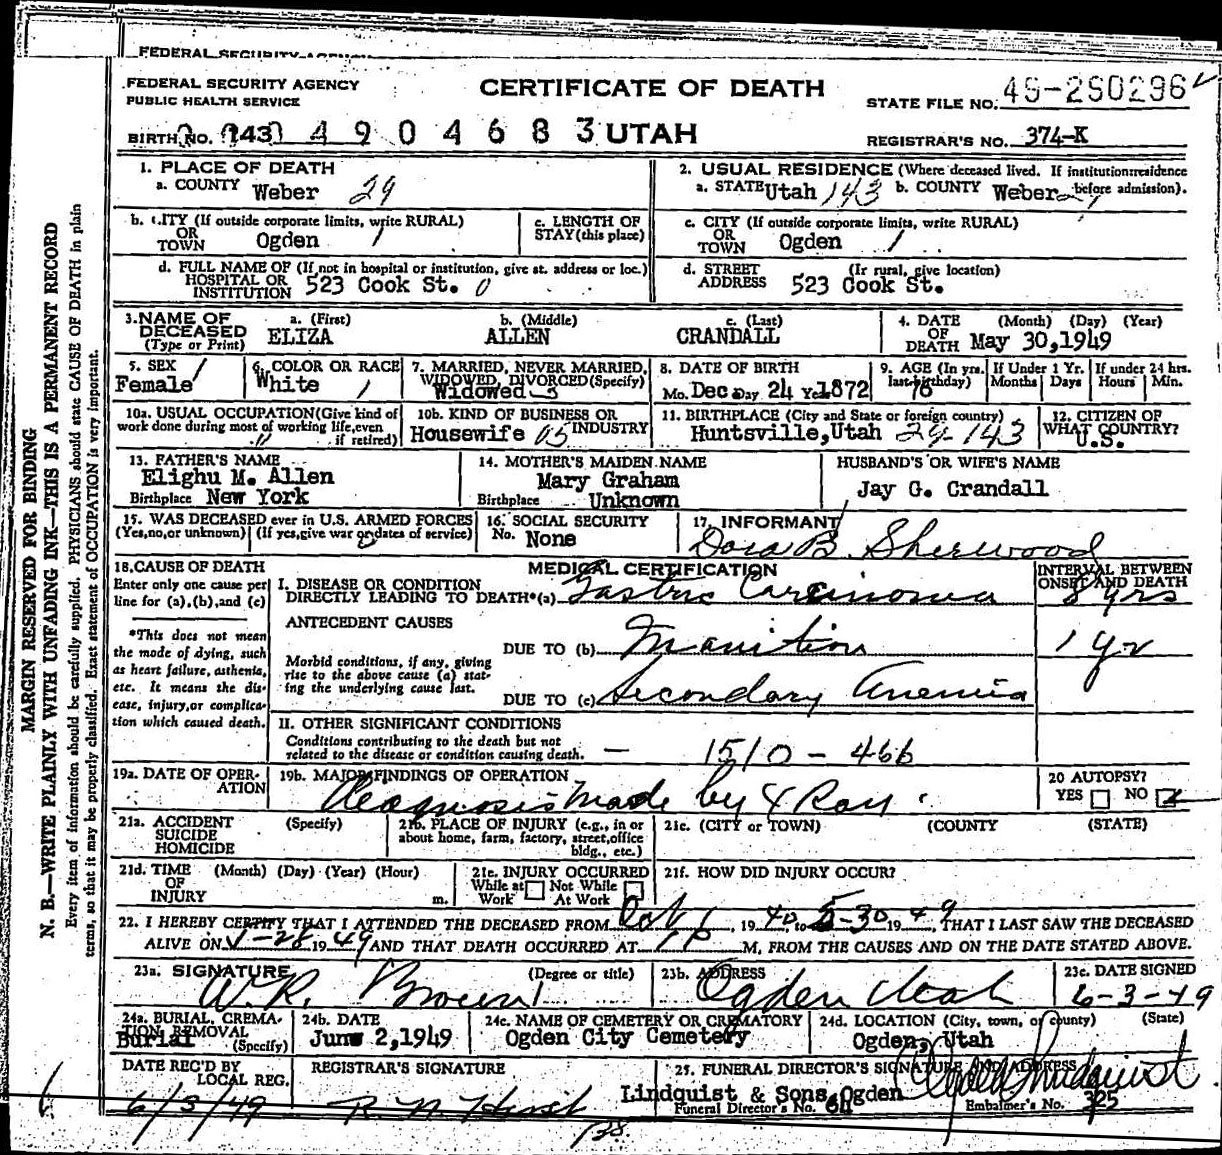 FEDERAL SECURITY AGENCY
FEDERAL SECURITY AGENCY
PUBLIC HEALTH SERVICE
CERTIFICATE OF DEATH
STATE FILE NO. 49-290296
BIRTH NO. 143 4904683 UTAH
REGISTRAR'S NO. 374-K
MARGIN RESERVED FOR BINDING
N. B.—WRITE PLAINLY WITH UNFADING INK—THIS IS A PERMANENT RECORD
Every item of information should be carefully supplied. PHYSICIANS should state CAUSE OF DEATH in plain
terms, so that it may be properly classified. Exact statement of OCCUPATION is very important.
1. PLACE OF DEATH
a. COUNTY Weber 29
2. USUAL RESIDENCE (Where deceased lived. If institution:residence
a. STATE Utah 143 b. COUNTY Weber 29 before admission).
b. CITY (If outside corporate limits, write RURAL)
OR
TOWN Ogden 1
c. LENGTH OF
STAY (this place)
c. CITY (If outside corporate limits, write RURAL)
OR
TOWN Ogden 1
d. FULL NAME OF (If not in hospital or institution, give st. address or loc.)
HOSPITAL OR
INSTITUTION 523 Cook St. 0
d. STREET (Ir rural, give location)
ADDRESS 523 Cook St.
3.NAME OF DECEASED (Type or Print)
a. (First) b. (Middle) c. (Last)
ELIZA ALLEN CRANDALL
4. DATE OF DEATH (Month) (Day) (Year)
May 30,1949
5. SEX 1
Female
6. COLOR OR RACE
White 1
7. MARRIED, NEVER MARRIED,
WIDOWED, DIVORCED (Specify)
Widowed 3
8. DATE OF BIRTH
Mo. Dec Day 24 Yr. 1872
9. AGE (In yrs. last birthday) 76
If Under 1 Yr. Months Days
If under 24 hrs. Hours Min.
10a. USUAL OCCUPATION (Give kind of
work done during most of working life, even
if retired)
"
10b. KIND OF BUSINESS OR
INDUSTRY
Housewife 05
11. BIRTHPLACE (City and State or foreign country)
Huntsville,Utah 29-143
12. CITIZEN OF
WHAT COUNTRY?
U.S.
13. FATHER'S NAME
Elighu M. Allen
Birthplace New York
14. MOTHER'S MAIDEN NAME
Mary Graham
Birthplace Unknown
HUSBAND'S OR WIFE'S NAME
Jay G. Crandall
15. WAS DECEASED ever in U.S. ARMED FORCES
(Yes,no,or unknown) (If yes,give war or dates of service)
16. SOCIAL SECURITY
No. None
17. INFORMANT
Dora B. Sherwood
18.CAUSE OF DEATH
Enter only one cause per
line for (a),(b),and (c)
*This does not mean
the mode of dying, such
as heart failure, asthenia,
etc. It means the dis-
ease, injury,or complica-
tion which caused death.
MEDICAL CERTIFICATION
INTERVAL BETWEEN
ONSET AND DEATH
I. DISEASE OR CONDITION
DIRECTLY LEADING TO DEATH*(a) Gastric Carcinoma 8 yrs
ANTECEDENT CAUSES
DUE TO (b) Inanition 1 yr
Morbid conditions, if any, giving
rise to the above cause (a) stat-
ing the underlying cause last.
DUE TO (c) Secondary Anemia
II. OTHER SIGNIFICANT CONDITIONS
Conditions contributing to the death but not
related to the disease or condition causing death. — 1510 - 466
19a. DATE OF OPER-
ATION
19b. MAJOR FINDINGS OF OPERATION
Diagnosis made by X Ray.
20 AUTOPSY?
YES NO
21a. ACCIDENT (Specify)
SUICIDE
HOMICIDE
21b. PLACE OF INJURY (e.g., in or
about home, farm, factory, street,office
bldg., etc.)
21c. (CITY or TOWN) (COUNTY) (STATE)
21d. TIME (Month) (Day) (Year) (Hour)
OF
INJURY m.
21e. INJURY OCCURRED
While at Work Not While At Work
21f. HOW DID INJURY OCCUR?
22. I HEREBY CERTIFY THAT I ATTENDED THE DECEASED FROM Oct 1, 1940, to 5-30 1949, THAT I LAST SAW THE DECEASED
ALIVE ON 5-28 1949 AND THAT DEATH OCCURRED AT 1 P M, FROM THE CAUSES AND ON THE DATE STATED ABOVE.
23a. SIGNATURE (Degree or title)
W.R. Brown
23b. ADDRESS
Ogden Utah
23c. DATE SIGNED
6-3-49
24a. BURIAL, CREMA-
TION, REMOVAL
(Specify)
Burial
24b. DATE
June 2,1949
24c. NAME OF CEMETERY OR CREMATORY
Ogden City Cemetery
24d. LOCATION (City, town, or county) (State)
Ogden, Utah
DATE REC'D BY
LOCAL REG.
6/3/49
REGISTRAR'S SIGNATURE
25. FUNERAL DIRECTOR'S SIGNATURE AND ADDRESS
Lindquist & Sons, Ogden
Funeral Director's No. Embalmer's No. 325